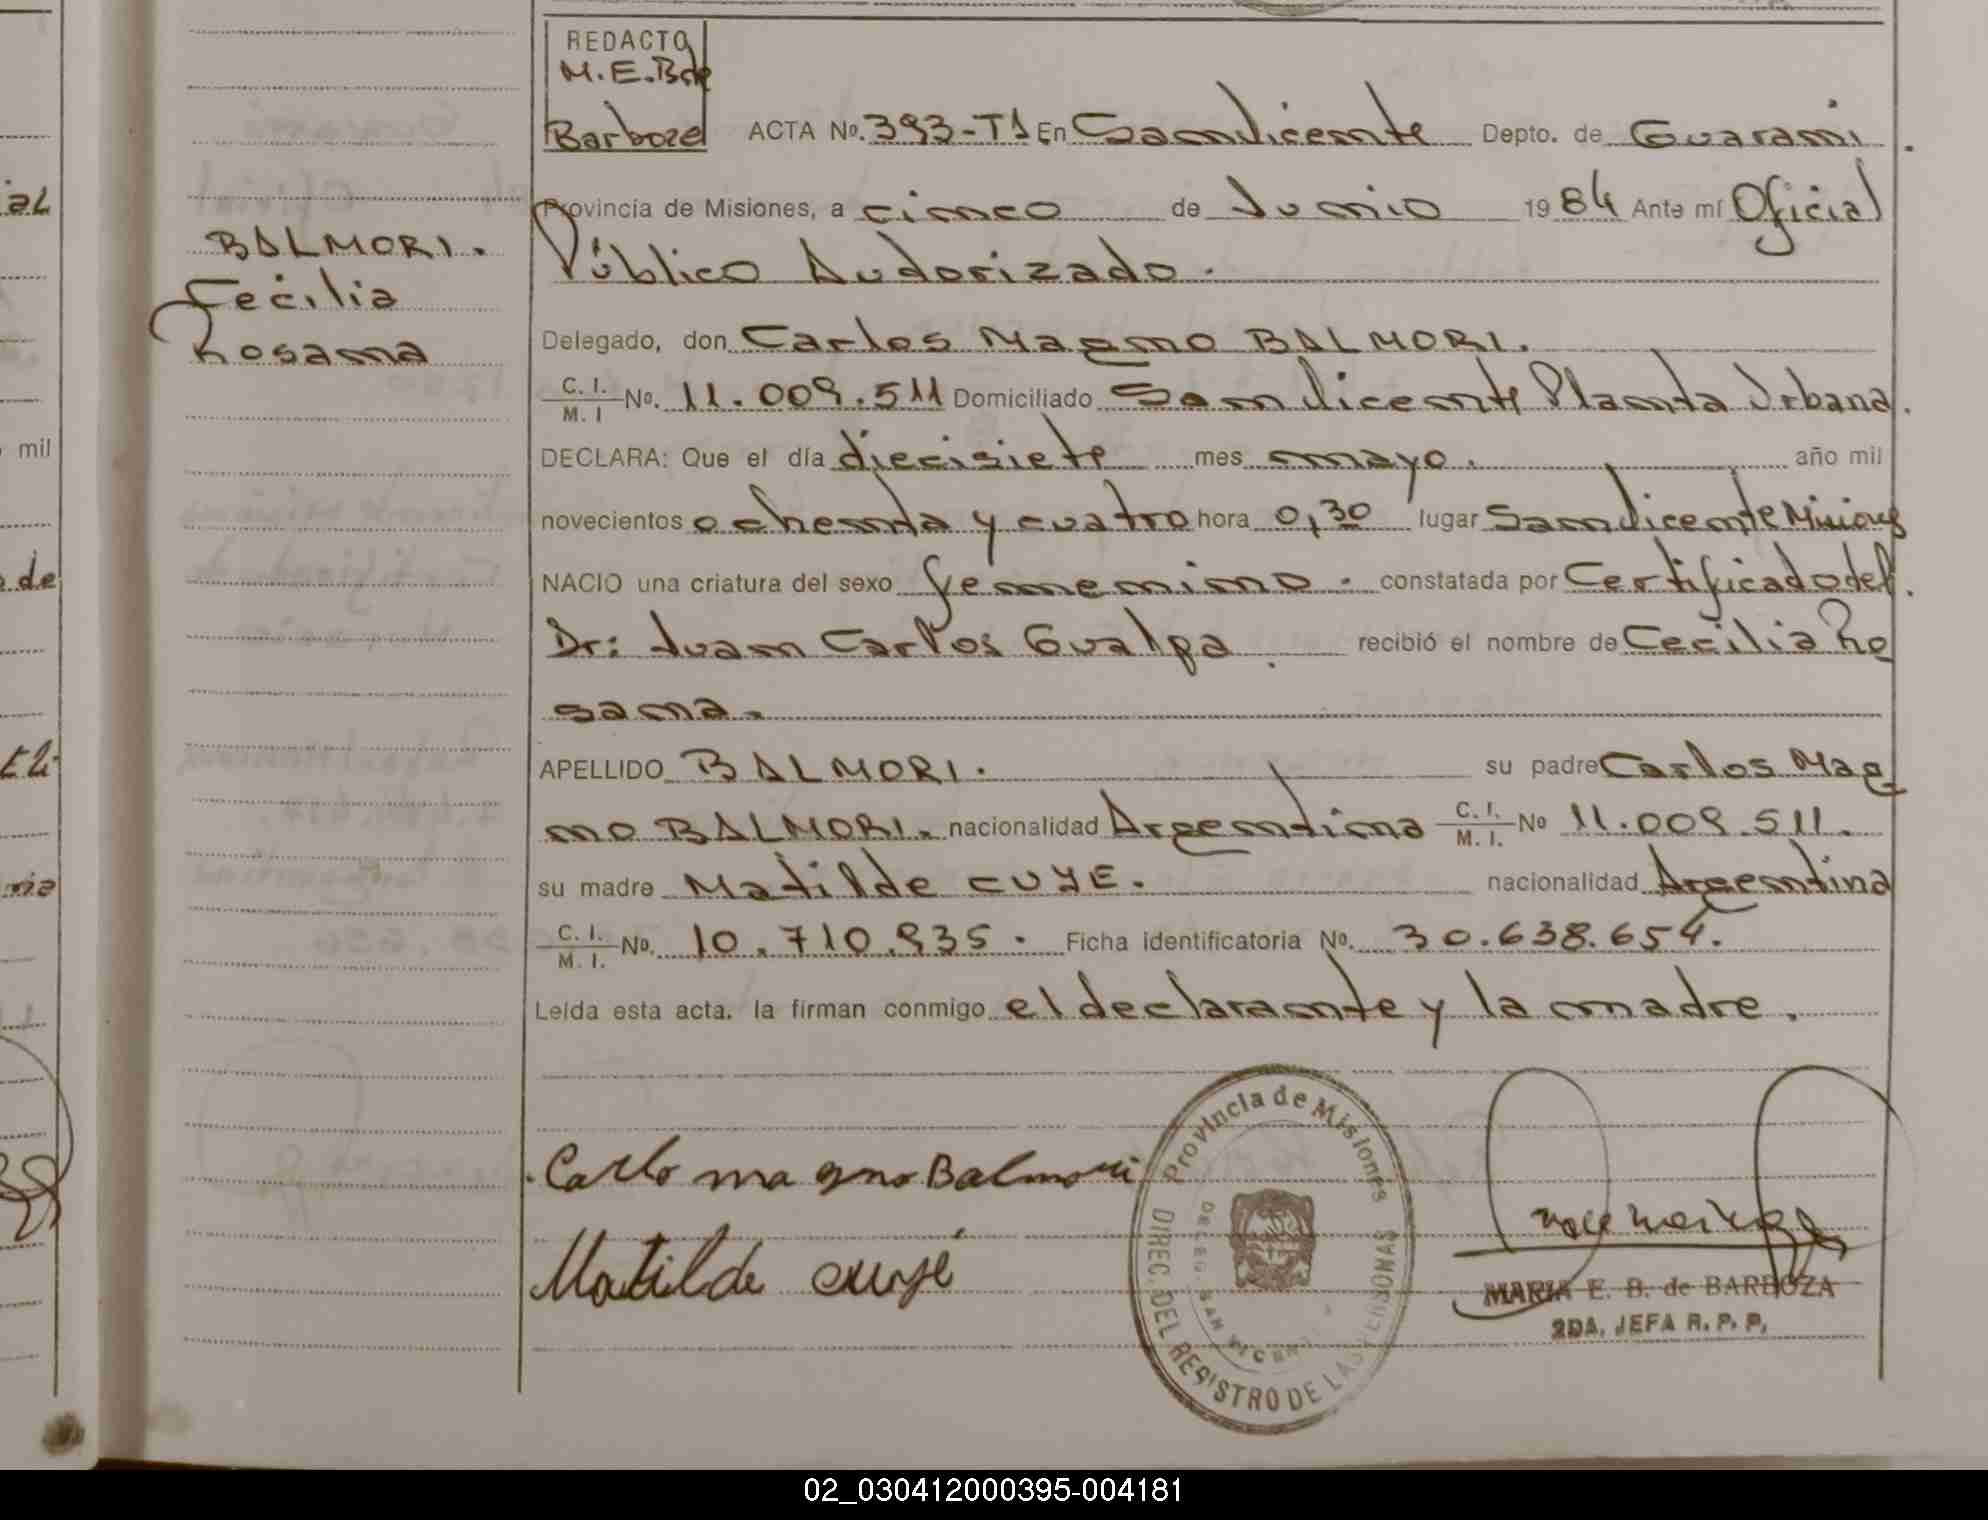 REDACTO
M.E.B de
Barboza
ACTA No. 393-T1 En San Vicente Depto. de Guaraní.
Provincia de Misiones, a cinco de Junio 1984 Ante mí Oficial
Público Autorizado.
Delegado, don Carlos Magno BALMORI.
C. I. / M. I No. 11.009.511 Domiciliado San Vicente Planta Urbana.
DECLARA: Que el día diecisiete mes mayo. año mil
novecientos ochenta y cuatro hora 0,30 lugar San Vicente Misiones
NACIO una criatura del sexo femenino. constatada por Certificado del.
Dr: Juan Carlos Gualpa. recibió el nombre de Cecilia Ro
sana.
APELLIDO BALMORI. su padre Carlos Mag
no BALMORI. nacionalidad Argentina C. I. / M. I. No 11.009.511.
su madre Matilde CUYE. nacionalidad Argentina
C. I. / M. I. No. 10.710.935. Ficha identificatoria No. 30.638.654.
Leída esta acta, la firman conmigo el declarante y la madre.
BALMORI.
Cecilia
Rosana
Carlo magno Balmori
Matilde cuyé
Provincia de Misiones
DIREC. DEL REGISTRO DE LAS PERSONAS
DELEG. SAN VICENTE
MARIA E. B. de BARBOZA
2DA. JEFA R. P. P.
ial
mil
de
02_030412000395-004181